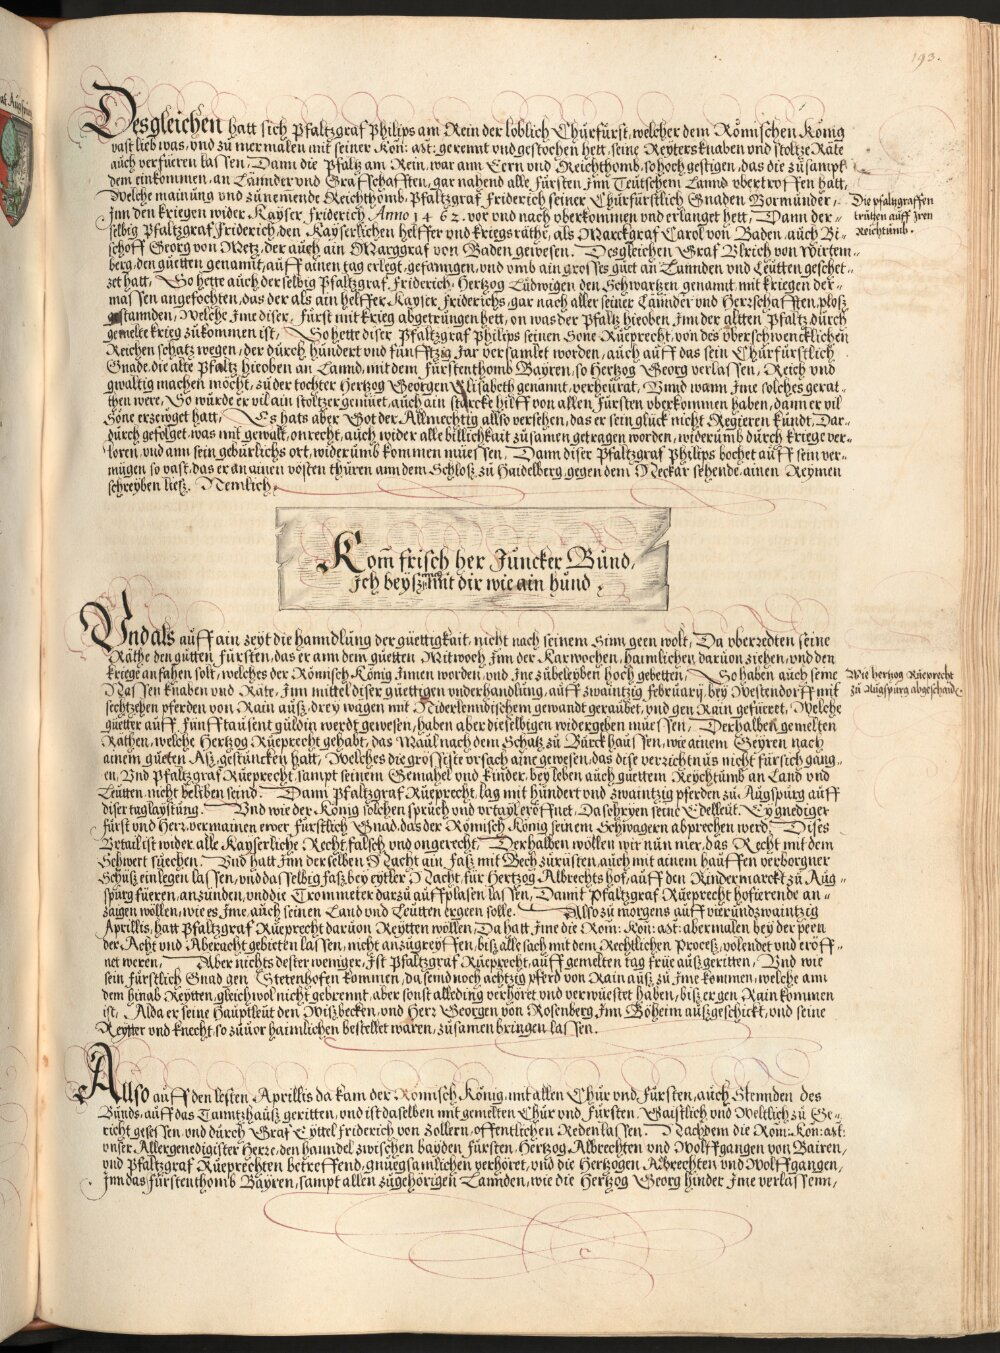 193.
Desgleichen hatt sich Pfaltzgraf Philips am Rein der loblich Chürfürst, welcher dem Römischen König
vast lieb was, vnd zu mermalen mit seiner Kön: Mt: gerennt vnd gestochen hett, seine Reyters knaben vnd stoltze Räte
auch verfüeren lassen, Dann die Pfaltz am Rein, war ann Eern vnd Reichthomb, so hoch gestigen, das die zusampt
dem einkommen, an Lännder vnd Grafschafften, gar nahend alle fürsten Inn Teütschem Lannd vbertroffen hatt,
Welche mainüng vnd zunemende Reichthomb, Pfaltzgraf Friderich seiner Chürfürstlich Gnaden Vormünder,
Inn den kriegen wider Kayser Friderich Anno 1462. vor vnd nach vberkommen vnd erlanget hett, Dann der-
selbig Pfaltzgraf Friderich, den Kayserlichen helffer vnd kriegsräthe, als Marckgraf Carol von Baden, auch Bi-
schoff Georg von Metz, der auch ain Marggraf von Baden gewesen. Desgleichen Graf Vlrich von Wirtem-
berg, den güetten genannt, auff ainen tag erlegt, gefanngen, vnd vmb ain grosses güet an Lannden vnd Leütten geschet-
zet hatt, So hette auch derselbig Pfaltzgraf Friderich, Hertzog Ludwigen den Schwartzen genannt, mit kriegen der-
massen angefochten, das der als ain helffer Kayser Friderichs, gar nach aller seiner Lännder vnd Herrschafften, ploß
gestannden, Welche Ime diser fürst mit krieg abgetrungen hett, on was der Pfaltz hieoben Inn der altten Pfaltz, durch
gemelte krieg zukommen ist, So hette diser Pfaltzgraf Philips seinen Sone Rueprecht, von des vberschwencklichen
Reichen schatz wegen, der durch hundert vnd fünfftzig Jar versamlet worden, auch auff das sein Chürfürstlich
Gnade, die alte Pfaltz hieoben an Lannd, mit dem fürstenthomb Bayren, so Hertzog Georg verlassen, Reich vnd
gwaltig machen möcht, zu der tochter Hertzog Georgen Elisabeth genannt, verheürat, Vnnd wann Ime solches gerat-
then were, So würde er vil ain stoltzer gemüet, auch ain starcke hilff von allen fürsten vberkommen haben, dann er vil
Söne erzewget hatt, Es hats aber Got der Allmechtig allso versehen, das er sein glück nicht Regieren kundt, Dar-
durch gefolget, was mit gewalt, on recht, auch wider alle billichkait zusamen getragen worden, widerumb durch kriege ver-
loren, vnd ann sein gebürlichs ort, widerumb kommen müessen, Dann diser Pfaltzgraf Philips bochet auff sein ver-
mügen so vast, das er an ainen vösten thüren ann dem Schloß zu Haidelberg, gegen dem Neckar sehende, ainen Reymen
schreyben ließ. Nemlich,
Die pfaltzgraffen
trützen auff Iren
Reichtumb.
Kom̄ frisch her Juncker Bund,
Ich beyß mich mit dir wie ain hund.
Vnd als auff ain zeyt die hanndlung der güettigkait, nicht nach seinem Sinn geen wolt, Da vberredten seine
Räthe den gutten fürsten, das er ann dem güetten Mitwoch Inn der Karwochen, haimlichen daruon ziehen, vnd den
kriege anfahen solt, welches der Römisch König Innen worden, vnd Ine zubeleyben hoch gebetten, So haben auch seine
Nassen knaben vnd Räte, Inn mittel diser güettigen vnderhandlung, auff zwaintzig februarij, bey Westendorff mit
sechtzehen pferden von Rain auß, drey wägen mit Niderlendischem gewandt geraubet, vnd gen Rain gefüeret, Welche
güetter auff fünfftausent güldin werdt gewesen, haben aber dieselbigen widergeben müessen, Derhalben gemelten
Räthen, welche Hertzog Rüeprecht gehabt, das Maul nach dem Schatz zu Burckhaussen, wie ainem Geyren nach
ainem güeten Aß, gestuncken hatt, Welches die grösseste vrsach aine gewesen, das dise verzichtnus nicht für sich ganng-
en, Vnd Pfaltzgraf Rüeprecht, sampt seinem Gemahel vnd kinder, bey leben auch güettem Reychtumb an Land vnd
Leütten, nicht beliben seind. Dann Pfaltzgraf Rüeprecht lag mit hundert vnd zwaintzig pferden zu Augspurg auff
diser taglaystung. Vnd wie der König solchen spruch vnd vrtayl eröffnet, Da schryen seine Edelleüt. Ey gnediger
fürst vnd Herr, vermainen ewer fürstlich Gnad, das der Römisch König seinem Schwagern absprechen werd. Dises
Vrtail ist wider alle Kayserliche Recht, falsch vnd ongerecht, Derhalben wöllen wir nun mer, das Recht mit dem
Schwert suechen. Vnd hatt Inn derselben Nacht ain faß mit Bech zurüsten, auch mit ainem hauffen verborgner
Schüß einlegen lassen, vnd dasselbig faß, bey eytler Nacht, für Hertzog Albrechts hof, auff den Rindermarckt zu Aug-
spurg füeren, anzunden, vnd die Trommeter darzu auffplasen lassen, Damit Pfaltzgraf Rüeprecht hofierende an-
zaigen wöllen, wie es Ime, auch seinen Land vnd Leütten ergeen solle. Allso zu morgens auff vierundzwaintzig
Aprillis, hatt Pfaltzgraf Rüeprecht daruon Reytten wöllen, Da hatt Ime die Röm: Kön: Mt: abermalen bey der peen
der Acht vnd Aberacht gebieten lassen, nicht anzugreyffen, biß alle sach mit dem Rechtlichen Proceß, volendet vnd eröff-
net weren, Aber nichts dester weniger, Ist Pfaltzgraf Rüeprecht, auff gemelten tag früe außgeritten, Vnd wie
sein fürstlich Gnad gen Stetenhofen kommen, da send noch achtzig pferd von Rain auß, zu Ime kommen, welche ann
dem hinab Reytten, gleichwol nicht gebrennt, aber sonst alleding verhöret vnd verwüestet haben, biß er gen Rain kommen
ist, Alda er seine Hauptleüt den Wißbecken, vnd Herr Georgen von Rosenberg, Inn Böheim außgeschickt, vnd seine
Reytter vnd knecht, so zuuor haimlichen bestellet waren, zusamen bringen lassen.
Wie hertzog Rüeprecht
zu Augspurg abgeschaide.
Allso auff den lesten Aprillis da kam der Römisch König, mit allen Chür vnd fürsten, auch Stennden des
Bunds, auff das Danntzhauß geritten, vnd ist daselben mit gemelten Chür vnd fürsten, Gaistlich vnd Weltlich zu Ge-
richt gesessen, vnd durch Graf Eyttel friderich von Zollern, offentlichen Reden lassen. Nachdem die Röm: Kön: Mt:
vnser Allergenedigister Herre, den hanndel zwischen bayden fürsten, Hertzog Albrechten vnd Wolffgangen von Bairen,
vnd Pfaltzgraf Rüeprechten betreffend, gnuegsamlichen verhöret, vnd die Hertzogen Albrechten vnd Wolffgangen,
Inn das fürstenthomb Bayren, sampt allen zugehörigen Lannden, wie die Hertzog Georg hinder Ime verlassenn,